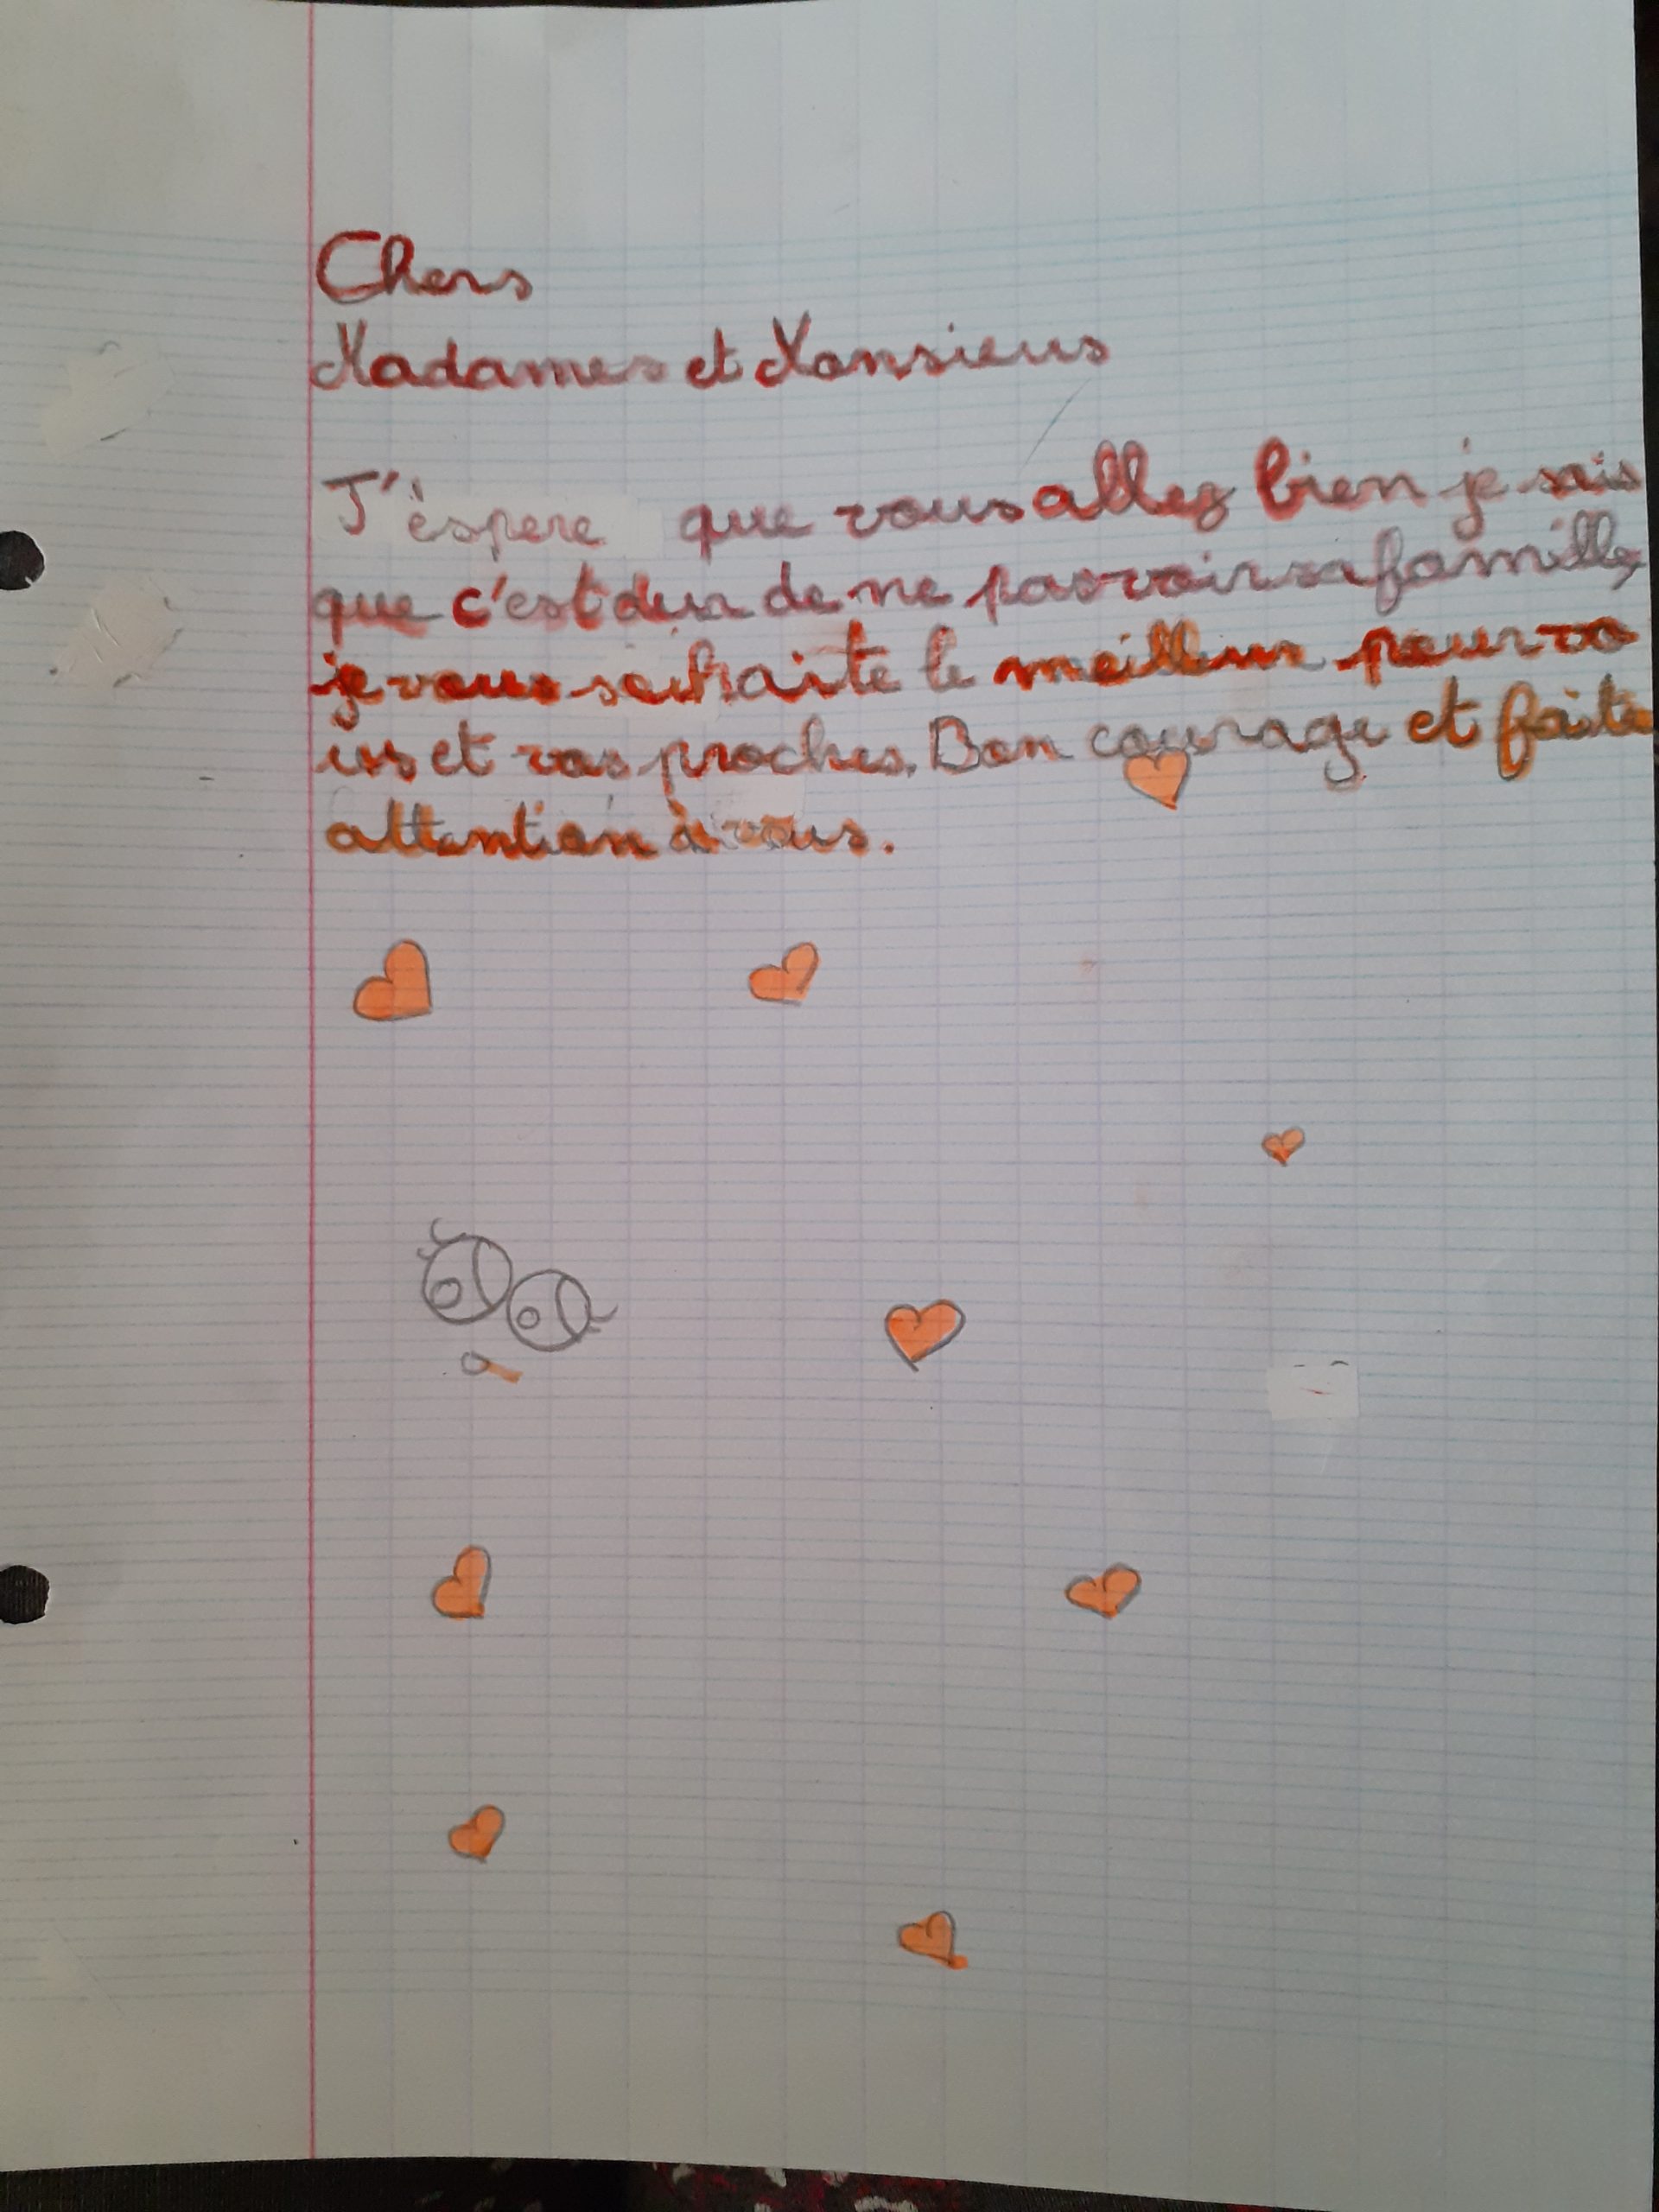 Chers
Madames et Monsieus
J'éspere que vous allez bien je sais
que c'est dur de ne pas voir sa famille,
je vous souhaite le meilleur pour vo
us et vos proches. Bon courage et faite
attention à vous.